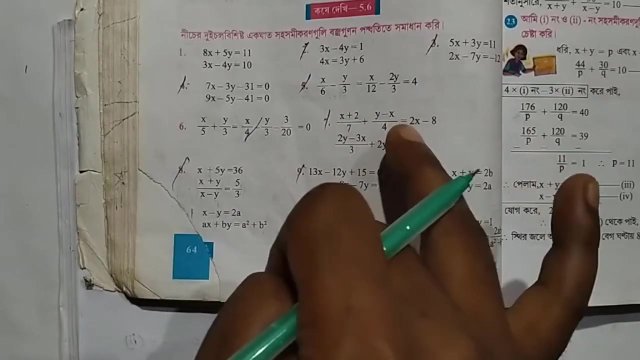 কষে দেখি—5.6
নীচের দুইচলবিশিষ্ট একঘাত সহসমীকরণগুলি বজ্রগুণন পদ্ধতিতে সমাধান করি।
1. 8x + 5y = 11
3x – 4y = 10
3x – 4y = 1
4x = 3y + 6
5x + 3y = 11
2x – 7y = –12
7x – 3y – 31 = 0
9x – 5y – 41 = 0
x/6 – y/3 = x/12 – 2y/3 = 4
6. x/5 + y/3 = x/4 – y/3 – 3/20 = 0
(x + 2)/7 + (y – x)/4 = 2x – 8
(2y – 3x)/3 + 2y
x + 5y = 36
(x + y)/(x – y) = 5/3
9. 13x – 12y + 15 =
– 7y =
x + y = 2b
= 2a
x – y = 2a
ax + by = a² + b²
64
x + y x – y = 10
23 আমি (i) নং ও (ii) - নং সহসমীকরণগুলি
চেষ্টা করি।
ধরি, x + y = p এবং x
44/p + 30/q = 10
4 × (i) নং – 3 × (ii) নং করে পাই,
176/p + 120/q = 40
165/p + 120/q = 39
11/p = 1 ∴ p = 11
∴ পেলাম, x + y (iii)
x – (iv)
যোগ করে, 2 থেকে পাই,
∴ স্থির জলে বেগ ঘণ্টায় 8